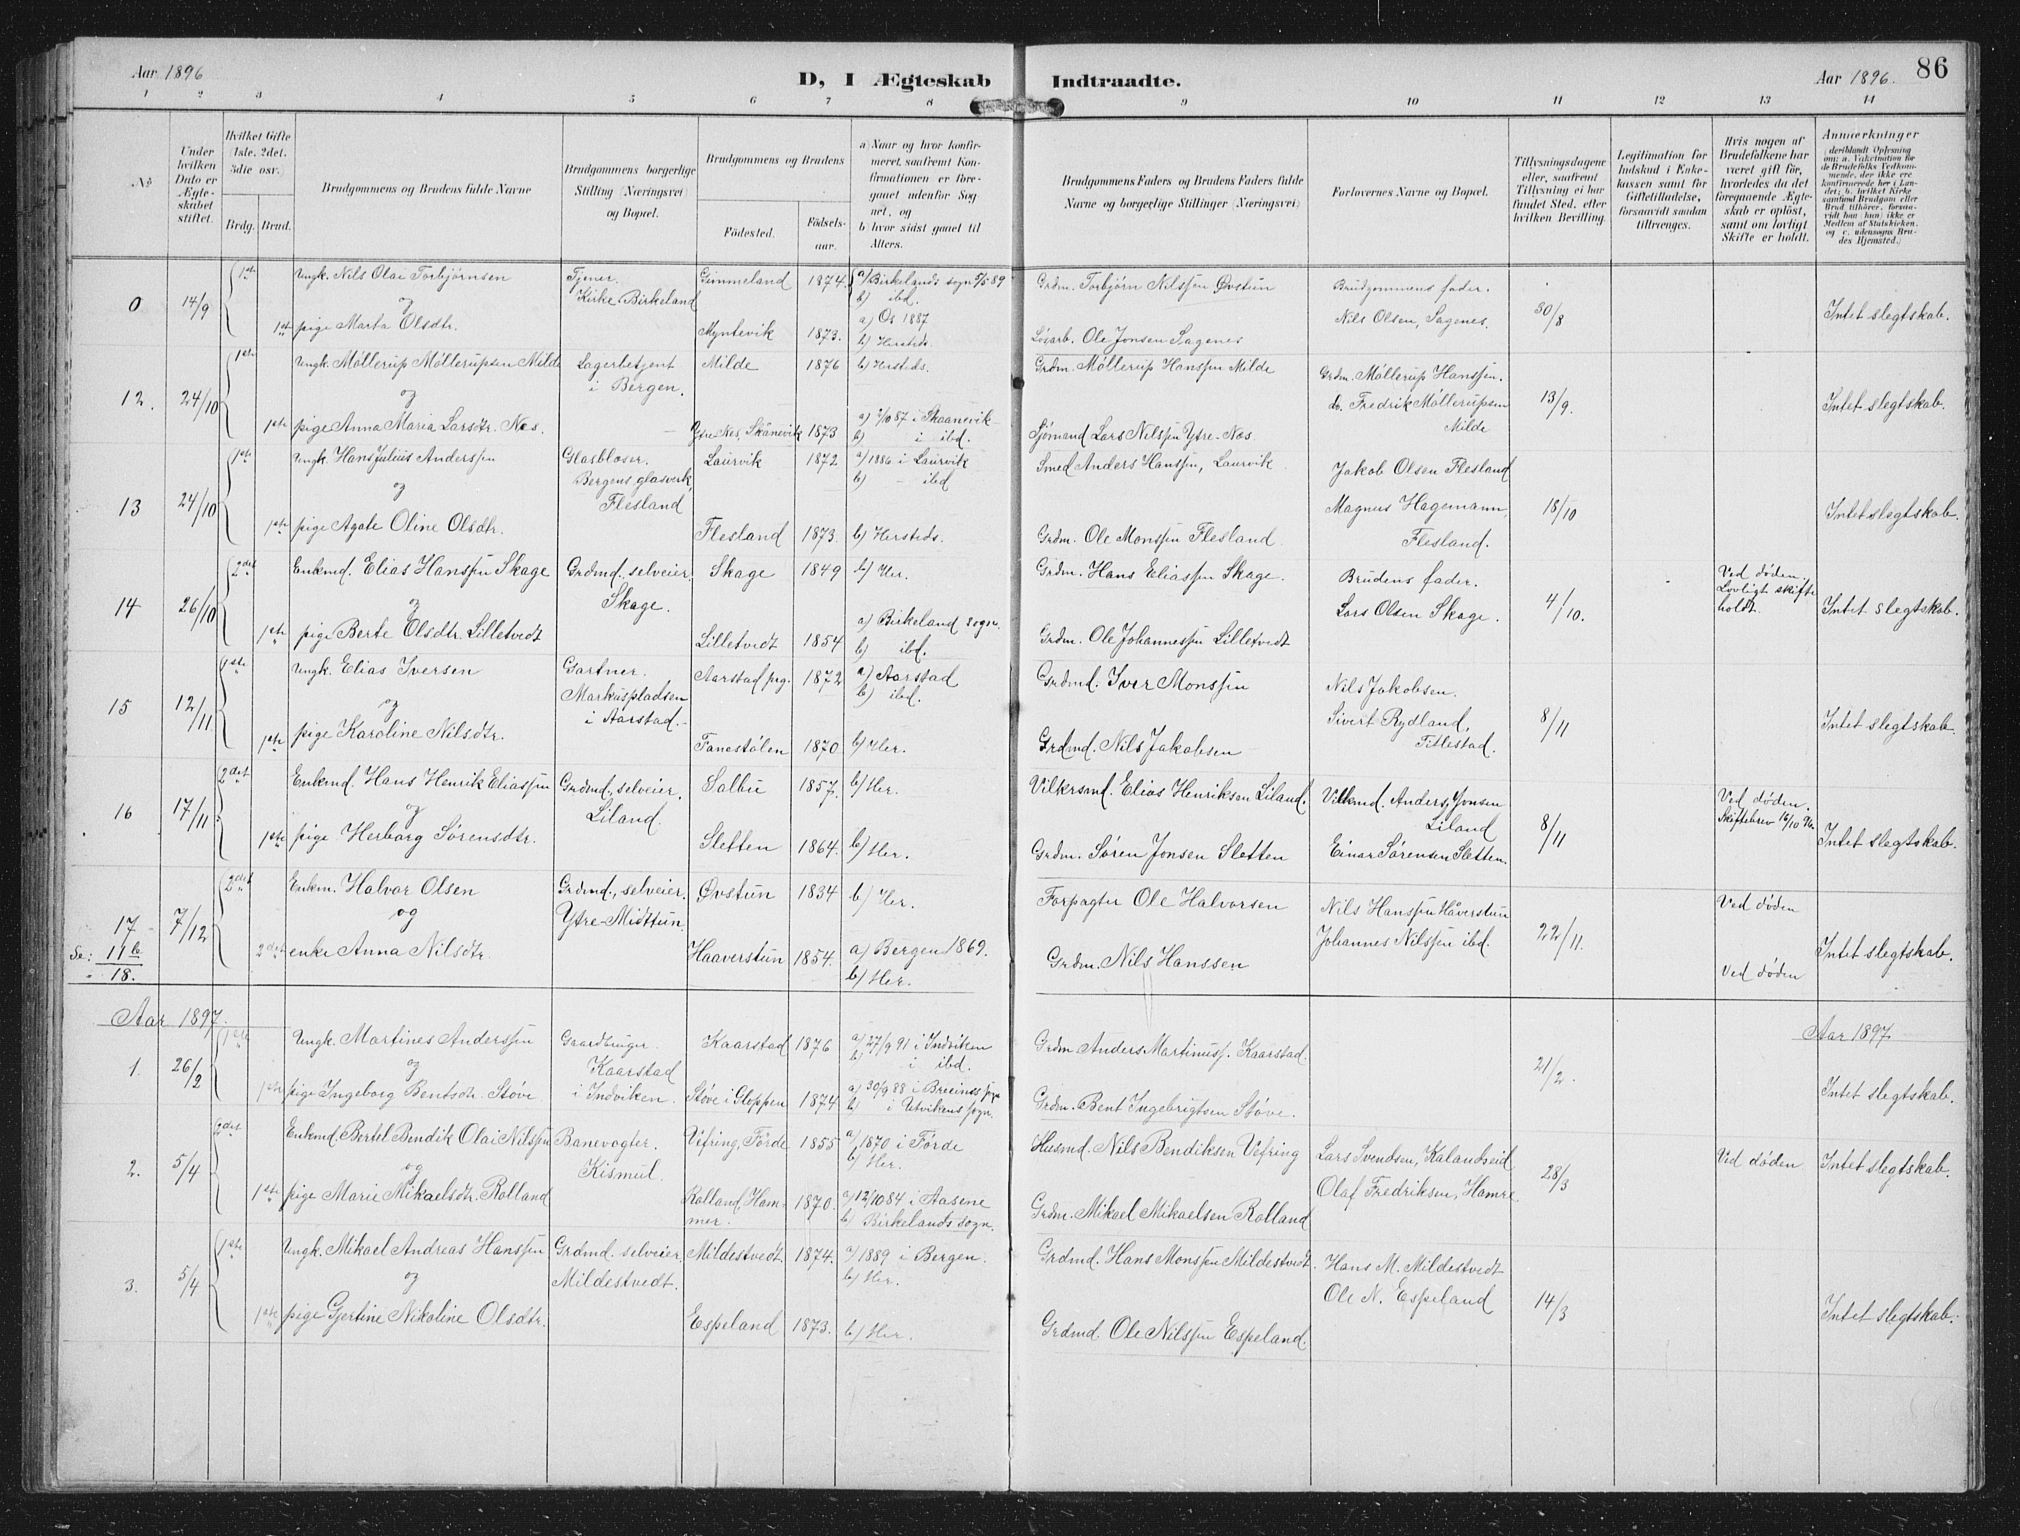 Aar 1896
D, I Ægteskab Indtraadte.
Aar 1896.
86
1 2 3 4 5 6 7 8 9 10 11 12 13 14
No
Under hvilken Dato er Ægteskabet stiftet.
Hvilket Gifte (1ste, 2det, 3die osv.)
Brdg. Brud.
Brudgommens og Brudens fulde Navne
Brudgommens borgerlige Stilling (Næringsvei) og Bopæl.
Brudgommens og Brudens
Fødested.
Fødselsaar.
a) Naar og hvor konfirmeret, saafremt Konfirmationen er foregaaet udenfor Sognet, og
b) hvor sidst gaaet til Alters.
Brudgommens Faders og Brudens Faders fulde Navne og borgerlige Stillinger (Næringsvei)
Forlovernes Navne og Bopæl.
Tillysningsdagene eller, saafremt Tillysning ei har fundet Sted, efter hvilken Bevilling.
Legitimation for Indskud i Enkekassen samt for Giftetilladelse, forsaavidt saadan tiltrænges.
Hvis nogen af Brudefolkene har været gift før, hvorledes da det foregaaende Ægteskab er opløst, samt om lovligt Skifte er holdt.
Anmærkninger (deriblandt Oplysning om: a. Vaksination for de Brudefolks Vedkommende, der ikke ere konfirmerede her i Landet; b. hvilket Kirkesamfund Brudgom eller Brud tilhører, forsaavidt han (hun) ikke er Medlem af Statskirken, og c. udensogns Brudes Hjemsted.)
0 14/9 1ste Ungk. Nils Olai Torbjørnsen Tjener. Kirke Birkeland Gimmeland 1874. a) Birkelands sogn 5/5 89 b) ibd. Grdm. Torbjørn Nilssen Øvstun Brudgommens fader. 30/8 Intet slegtskab.
og
1ste pige Marta Olsdtr. Myntevik 1873. a) Os 1887 b) Hersteds. Løsarb. Ole Jonsen Sagenes Nils Olsen, Sagenes.
12. 24/10 1ste Ungk. Møllerup Møllerupsen Milde Lagerbetjent i Bergen. Milde 1876 b) Hersteds. Grdm. Møllerup Hanssen Milde Grdm. Møllerup Hanssen. 13/9. Intet slegtskab.
og
1ste pige Anna Maria Larsdtr. Nes. Ytre Nes, Skånevik 1873 a) 2/10 87 i Skaanevik b) i ibd. Sjømand Lars Nilssen Ytre-Nes do. Fredrik Møllerupsen Milde
13 24/10 1ste Ungk. Hans Julius Anderssen Glasblæser. Bergens glasverk, Flesland Laurvik 1872 a) 1886 i Laurvik b) - ibd Smed Anders Hanssen, Laurvik Jakob Olsen Flesland 18/10 Intet slegtskab.
og
1ste pige Agate Oline Olsdtr. Flesland 1873. b) Hersteds. Grdm. Ole Monssen Flesland Magnus Hagemann, Flesland.
14 26/10 2det Enkmd. Elias Hanssen Skage Grdmd. selveier. Skage. Skage 1849 b) Her. Grdm. Hans Eliassen Skage. Brudens fader. 4/10. Ved døden. Lovligt skifte holdt. Intet slegtskab.
og
1ste pige Berte Olsdtr. Lilletvedt Lilletvedt 1854 a) Birkeland sogn. b) ibd. Grdm. Ole Johannessen Lilletvedt Lars Olsen Skage.
15 12/11 1ste Ungk. Elias Iversen Gartner. Markuspladsen i Aarstad. Aarstad prg. 1872 a) Aarstad b) ibd. Grdmd. Iver Monssen Nils Jakobsen. 8/11 Intet slegtskab.
og
1ste pige Karoline Nilsdtr. Fanestølen 1870 b) Her. Grdmd. Nils Jakobsen Sivert Rydland, Titlestad.
16 17/11 2det Enkmd. Hans Henrik Eliassen Grdmd., selveier. Liland. Salbu 1857. b) Her. Vilkersmd. Elias Henriksen Liland. Vilkmd. Anders Jonsen Liland 8/11 Ved døden. Skiftebrev 16/10 96. Intet slegtskab.
og
1ste pige Herborg Sørensdtr. Sletten 1864. b) Her. Grdm. Søren Jonsen Sletten Einar Sørensen Sletten.
17 7/12 2det Enkm. Halvor Olsen Grdmd., selveier. Ytre-Midttun Øvstun 1834 b) Her. Forpagter Ole Halvorsen Nils Hanssen Håverstun 22/11. Ved døden Intet slegtskab.
Se: 11b og
18. 2det enke Anna Nilsdtr. Haaverstun 1854. a) Bergen 1869. b) Her. Grdm. Nils Hanssen Johannes Nilssen ibd. Ved døden
Aar 1897. Aar 1897
1. 26/2 1ste Ungk. Martines Anderssen Gaardbruger Kaarstad i Indviken. Kaarstad 1876 a) 27/9 91 i Indviken b) i ibd. Grdm Anders Martinuss. Kaarstad. 21/2. Intet slegtskab.
og
1ste pige Ingeborg Bentsdtr. Støve Støve i Gloppen 1874 a) 30/9 88 i Breims sogn b) i Utvikens sogn. Grdm. Bent Ingebrigtsen Støve.
2. 5/4 2det Enkmd. Bertel Bendik Olai Nilssen Banevogter. Kismul. Vefring, Førde 1855 a) 1870 i Førde b) Her. Husmd. Nils Bendiksen Vefring Lars Svendsen, Kalandseid 28/3 Ved døden Intet slegtskab.
og
1ste pige Marie Mikaelsdtr. Rolland Rolland, Hammer. 1870. a) 12/10 84 i Aasene b) Birkelands sogn. Grdm. Mikael Mikaelsen Rolland Olaf Fredriksen, Hamre.
3. 5/4 1ste Ungk. Mikael Andreas Hanssen Grdmd. selveier Mildestvedt. Mildestvedt. 1874. a) 1889 i Bergen. b) Her. Grdmd. Hans Monssen Mildestvedt. Hans M. Mildestvedt 14/3 Intet slegtskab.
og
1ste pige Gjertine Nikoline Olsdtr. Espeland 1873. b) Her. Grdmd. Ole Nilssen Espeland. Ole N. Espeland